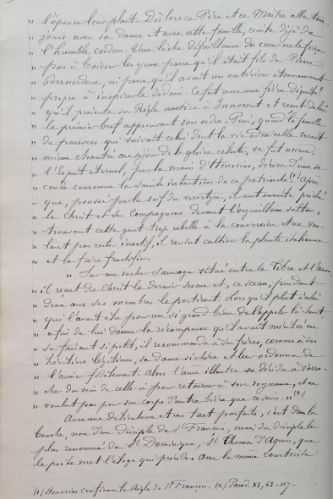 " l'épouse leur plaît. Dès lors ce Père et ce Maître alla tou-
" jours avec sa dame et avec cette famille, ceinte déjà de
" l'humble cordon. Une lâche défaillance du cœur ne lui fit
" pas baisser les yeux parce qu'il était fils de Pierre
" Bernardone, ni parce qu'il avait un extérieur étonnamment
" propre à inspirer le dédain. Ce fut avec une fière dignité
" qu'il présenta sa Règle austère à Innocent et reçut de lui
" le premier bref approuvant son ordre. Puis, quand la famille
" de pauvres qui suivait celui dont la vie admirable serait
" mieux chantée au séjour de la gloire céleste, se fut accrue,
" l'Esprit éternel, par la main d'Honorius, décora d'une se-
" conde couronne la sainte intention de ce patriarche (1). Après
" que, poussé par la soif du martyre, il eut ensuite prêché
" le Christ et ses Compagnons devant l'orgueilleux sultan,
" trouvant cette gent trop rebelle à la conversion et ne vou-
" lant pas rester inactif, il revint cultiver la plante italienne
" et la faire fructifier.
" Sur un rocher sauvage situé entre le Tibre et l'Arno
" il reçut du Christ le dernier sceau et, ce sceau, pendant
" deux ans ses membres le portèrent. Lorsqu'il plut à celui
" qui l'avait élu pour un si grand bien de l'appeler là-haut
" afin de lui donner la récompense qu'il avait méritée en
" se faisant si petit, il recommanda à ses frères, comme à ses
" héritiers légitimes, sa dame si chère et leur ordonna de
" l'aimer fidèlement. Alors l'âme illustre se décida à s'arra-
" cher du sein de celle-ci pour retourner à son royaume, et ne
" voulut pas pour son corps d'autre bière que ce sein. " (2)
Avec une délicatesse et un tact parfaits, c'est dans la
bouche, non d'un disciple de St François, mais du disciple le
plus renommé de St Dominique, St Thomas d'Aquin, que
le poète met l'éloge qui précède. Avec la même courtoisie
(1) Honorius confirma la Règle de St François. (2) Parad. XI, 43-117.